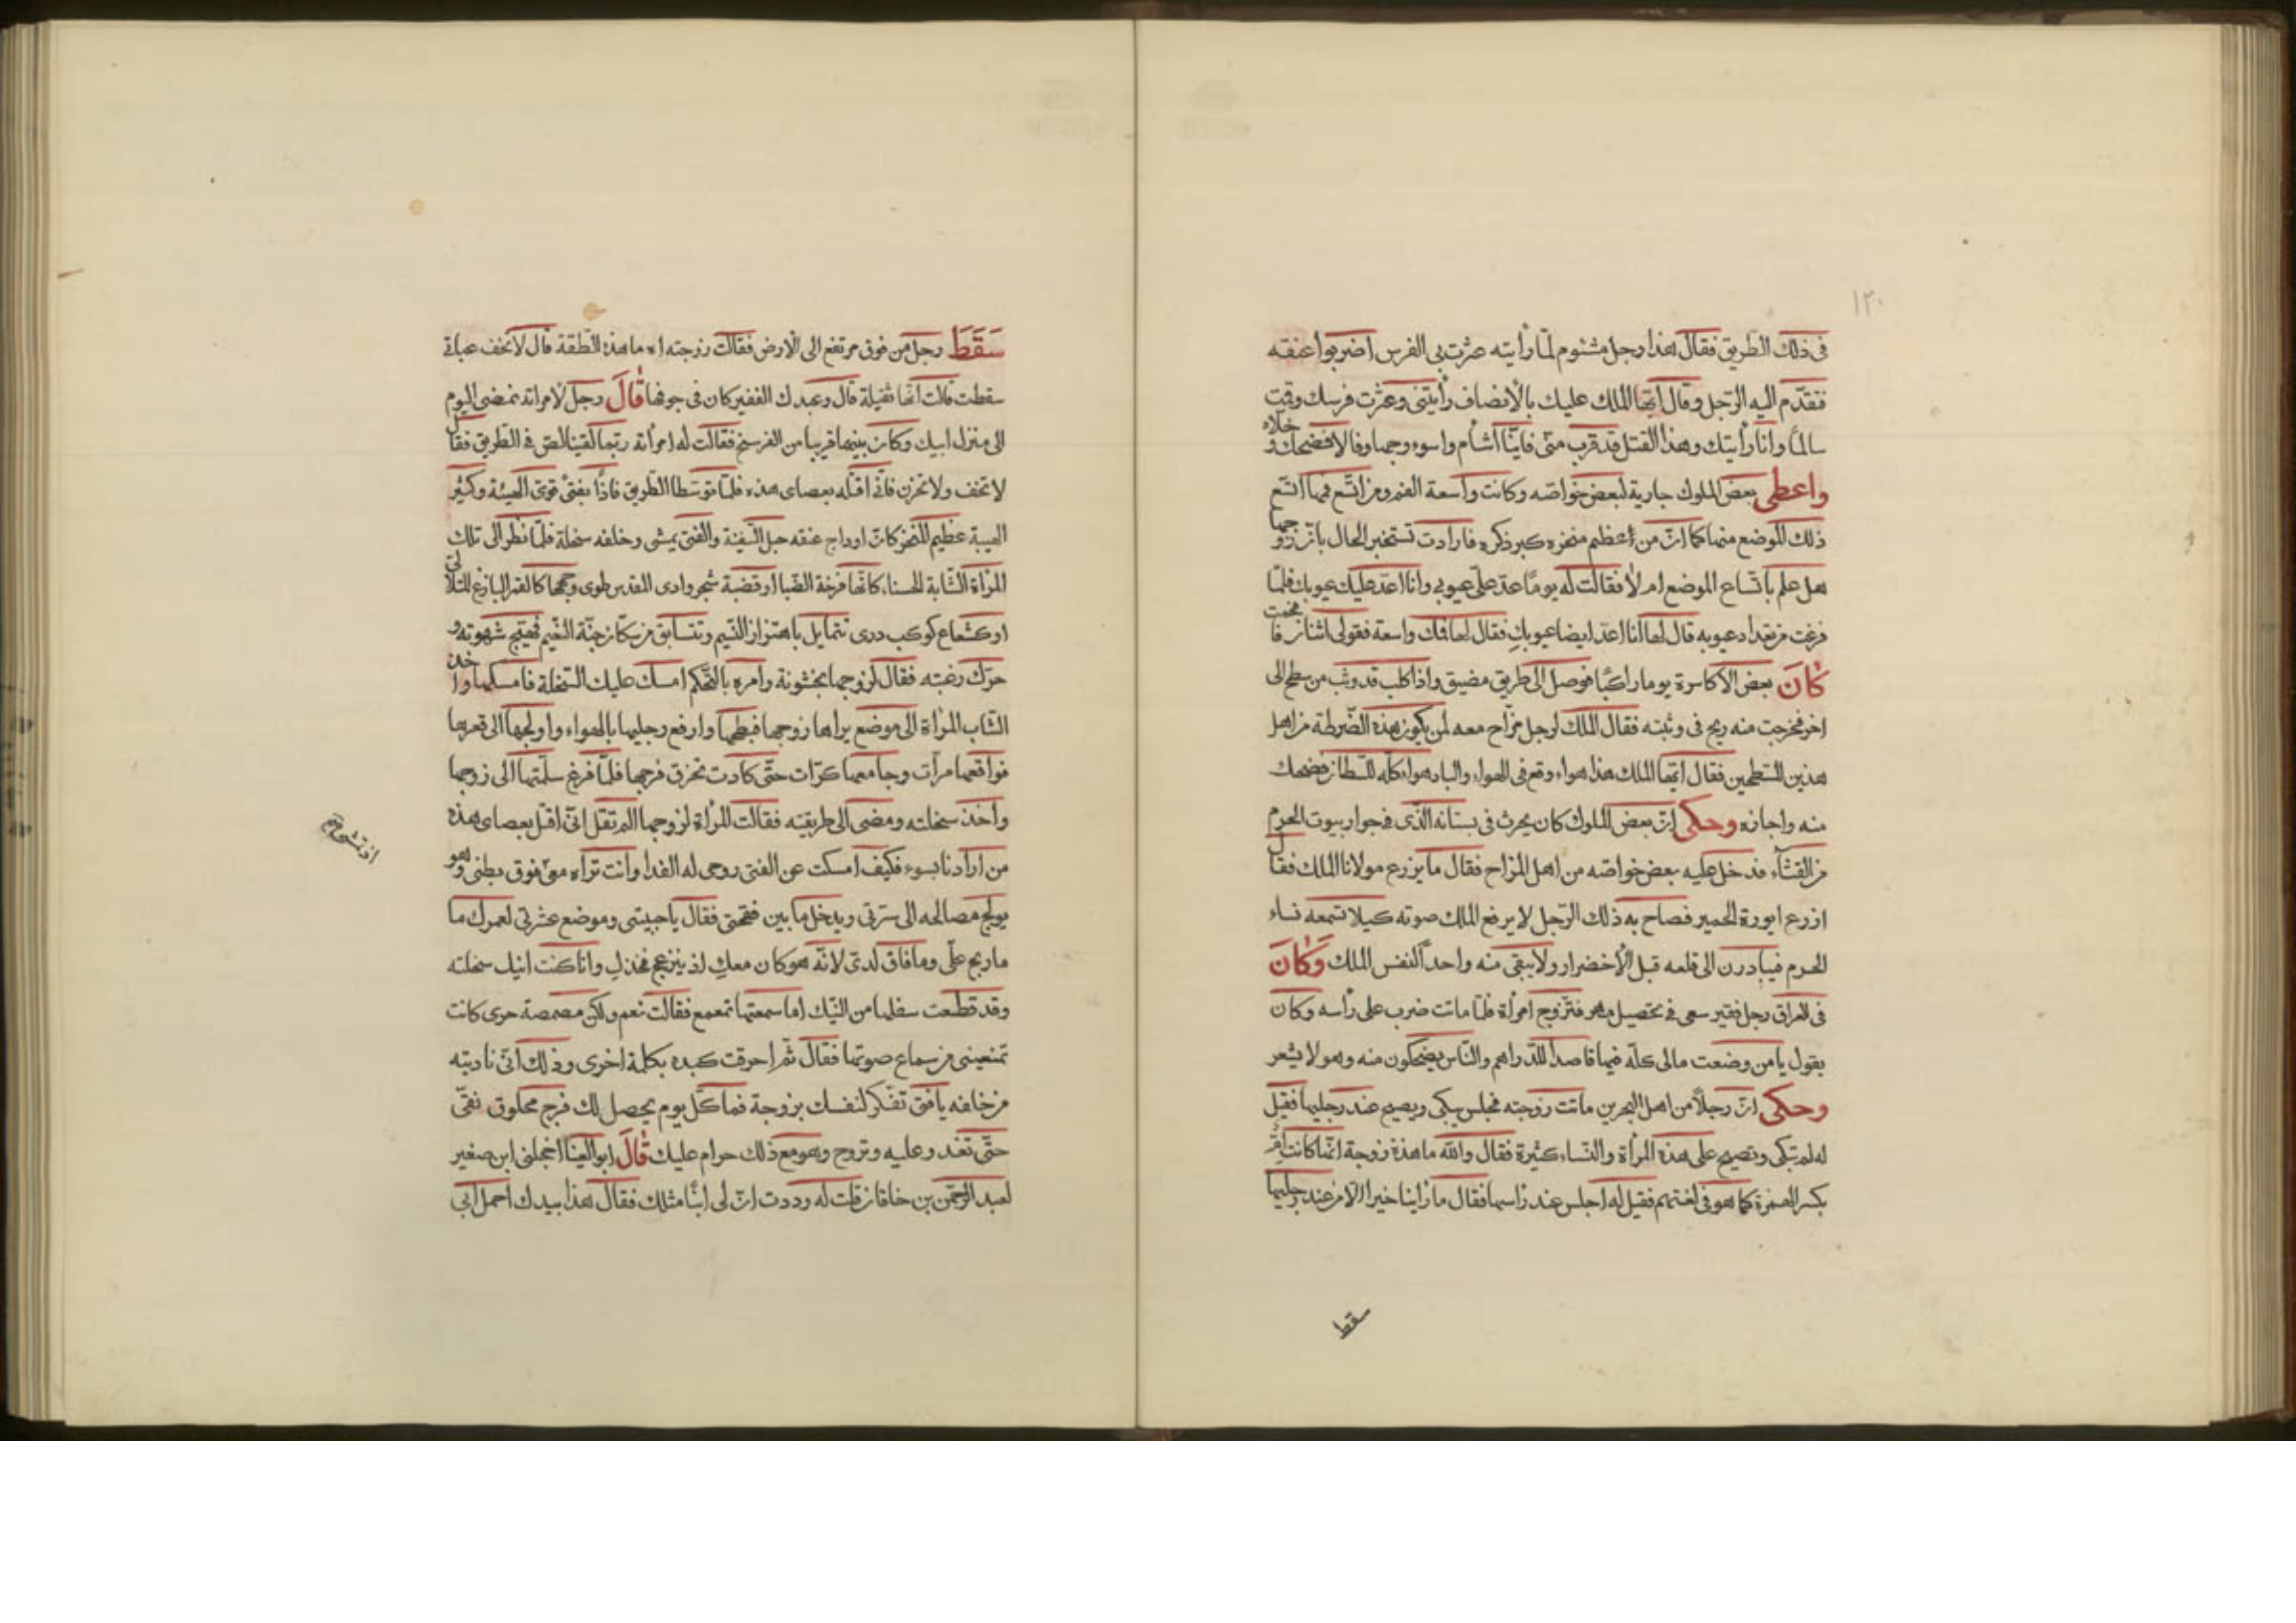 ١٢٠
فى ذلك الطريق فقال هذا رجل مشئوم لمّا رأيته عثرت بى الفرس اضربوا عنقه
فتقدّم اليه الرّجل وقال ايّها الملك عليك بالأنصاف رأيتنى وعثرت فرسك وقمت
سالمًا وانا رأيتك وهذا القتل قد قرب منّى فايّنا أشأم واسوء وجها وفالا فضحك وخلّاه
واعطى بعض الملوك جارية لبعض خواصّه وكانت واسعة الفم ومن اتّسع فمها اتّسع
ذلك الموضع منها كما انّ من أعظم منخره كبر ذكره فارادت تستخبر الحال بانّ زوجها
هل علم باتّساع الموضع ام لا فقالت له يومًا عدّ علىّ عيوبى وانا اعدّ عليك عيوبك فلمّا
فرغت من تعداد عيوبه قال لها انا اعدّ ايضا عيوبكِ فقال لها فمك واسعة فقولى اثنان فافحمت
كَانَ بعض الأكاسرة يوما راكبًا فوصل الى طريق مضيق واذا كلب قد وثب من سطح الى
اخر فخرجت منه ريح فى وثبته فقال الملك لرجل مزّاح معه لمن يكون هذه الضّرطة من اهل
هذين السّطحين فقال ايّها الملك هذا هواء وقع فى الهواء والباد هواء كلّه للسّلطان فضحك
منه واجازه وحكى انّ بعض الملوك كان يحرث فى بستانه الّذى فى جوار بيوت الحرم
من القثّاء فدخل عليه بعض خواصّه من اهل المزاح فقال ما يزرع مولانا الملك فقال
ازرع ايورة الحمير فصاح به ذلك الرّجل لا يرفع الملك صوته كيلا تسمعه نساء
الحرم فيبادرن الى قلعه قبل الأخضرار ولا يبقى منه واحد ألنفس الملك وَكَانَ
فى العراق رجل فقير سعى فى تحصيل مهر فتزوج امرأة فلمّا ماتت ضرب على رأسه وكان
يقول يا من وضعت مالى كلّه فيها قاصدا للدّراهم والنّاس يضحكون منه وهو لا يشعر
وحكى انّ رجلاً من اهل البحرين ماتت زوجته فجلس يبكى ويصيح عند رجليها فقيل
له لم تبكى وتصيح على هذه المرأة والنّساء كثيرة فقال والله ما هذة زوجة انّما كانت
بكسر الهمزة كما هو فى لغتهم فقيل له اجلس عند رأسها فقال ما رأينا خيرا الّا من عند رجليها
سقط
سَقَطَ رجل من فوق مرتفع الى الأرض فقالت زوجته اه ما هذه الطقة قال لا تخف عباتى
سقطت قالت انّها ثقيلة قال وعبدك الفقير كان فى جوفها قَالَ رجل لأمراته نمضى اليوم
الى منزل ابيك وكان بينهما قريبا من الفرسخ فقالت له امرأته ربّما لقينا لصّ فى الطّريق فقال
لا تخف ولا تحزن فانّى اقتله بعصاى هذه فلمّا توسّطا الطّريق فاذًا بفتى قوىّ الهيئة وكثير
الهيبة عظيم المنخر كانّ اوداج عنقه حبل السّفينة والفتى يمشى وخلفه سخلة فلمّا نظر الى تلك
المرأة الشّابة الحسناء كانّها فرخة الضّبا او قضبة شجر وادى المقدس طوى وجهها كالقمر البازغ المتلألى
او كشعاع كوكب درى تتمايل باهتزاز النّسيم وتتسابق من سكّان جنّة النّعيم فهيّج شهوته و
حرّك رغبته فقال لزوجها بخشونة وأمره بالتّحكّم امسك عليك السّخلة فامسكها واخذ
الشّاب المرأة الى موضع يراها زوجها فبطحها وارفع رجليها بالهواء واولجها الى قعرها
فواقعها مرآت وجامعها كرّات حتّى كادت تخرق فرجها فلمّا فرغ سلّمتها الى زوجها
واخذ سخلته ومضى الى طريقته فقالت المرأة لزوجها الم تقل انّى اقتل بعصاى هذه
من ارادنا بسوء فكيف امسكت عن الفتى روحى له الفدا وانت تراه معى فوق بطنى وهو
يولج مصالحه الى سرّتى ويدخل ما بين فتحتى فقال يا حبيبتى وموضع عشرتى لعمرك ما
ما ربح علىّ وما فاق لدىّ لانّه هو كان معكِ لذ ينزعج فخذكِ وانا كنت انيك سخلته
وقد قطعت سفلها من النّيك اما سمعتها تمعمع فقالت نعم ولكن مصمصة حرى كانت
تمنعينى من سماع صوتها فقال ثمّ احرقت كبده بكلمة اخرى وذلك انّى ناديته
من خلفه يا فتى تفكّر لنفسك بزوجة فما كلّ يوم يحصل لك فرج محلوق نقىّ
حتّى تغد وعليه وتروح وهو مع ذلك حرام عليك قَالَ ابو العينا اخجلنى ابن صغير
لعبد الرّحمن بن خاقان قلت له وددت انّ لى ابنًا مثلك فقال هذا بيدك احمل ابى